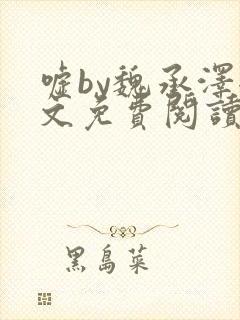 嘘by魏承澤
文免費閱讀
黑島菜